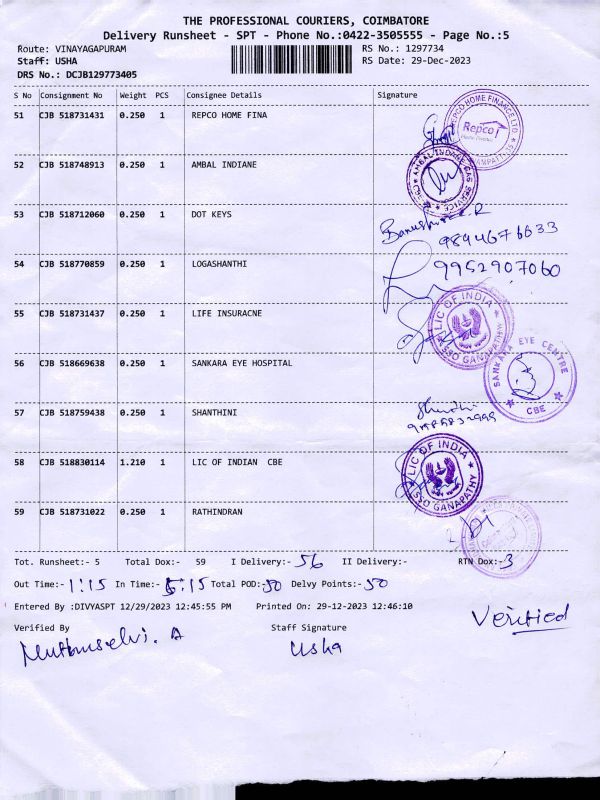 THE PROFESSIONAL COURIERS, COIMBATORE
Delivery Runsheet - SPT - Phone No.:0422-3505555 - Page No.:5
Route: VINAYAGAPURAM RS No.: 1297734
Staff: USHA RS Date: 29-Dec-2023
DRS No.: DCJB129773405
S No Consignment No Weight PCS Consignee Details Signature
51 CJB 518731431 0.250 1 REPCO HOME FINA
REPCO HOME FINANCE LTD
Repco
Home Finance
52 CJB 518748913 0.250 1 AMBAL INDIANE
AMBAL INDANE GAS SERVICE
53 CJB 518712060 0.250 1 DOT KEYS
54 CJB 518770859 0.250 1 LOGASHANTHI 9952907060
55 CJB 518731437 0.250 1 LIFE INSURACNE
LIC OF INDIA
SSO GANAPATHY
56 CJB 518669638 0.250 1 SANKARA EYE HOSPITAL
SANKARA EYE CENTRE
CBE
57 CJB 518759438 0.250 1 SHANTHINI
58 CJB 518830114 1.210 1 LIC OF INDIAN CBE
LIC OF INDIA
SSO GANAPATHY
59 CJB 518731022 0.250 1 RATHINDRAN
Tot. Runsheet:- 5 Total Dox:- 59 I Delivery:- 56 II Delivery:- RTN Dox:- 3
Out Time:- 1:15 In Time:- 5:15 Total POD:- 50 Delvy Points:- 50
Entered By :DIVYASPT 12/29/2023 12:45:55 PM Printed On: 29-12-2023 12:46:10
Verified By Staff Signature Verified
Muthuselvi. A Usha